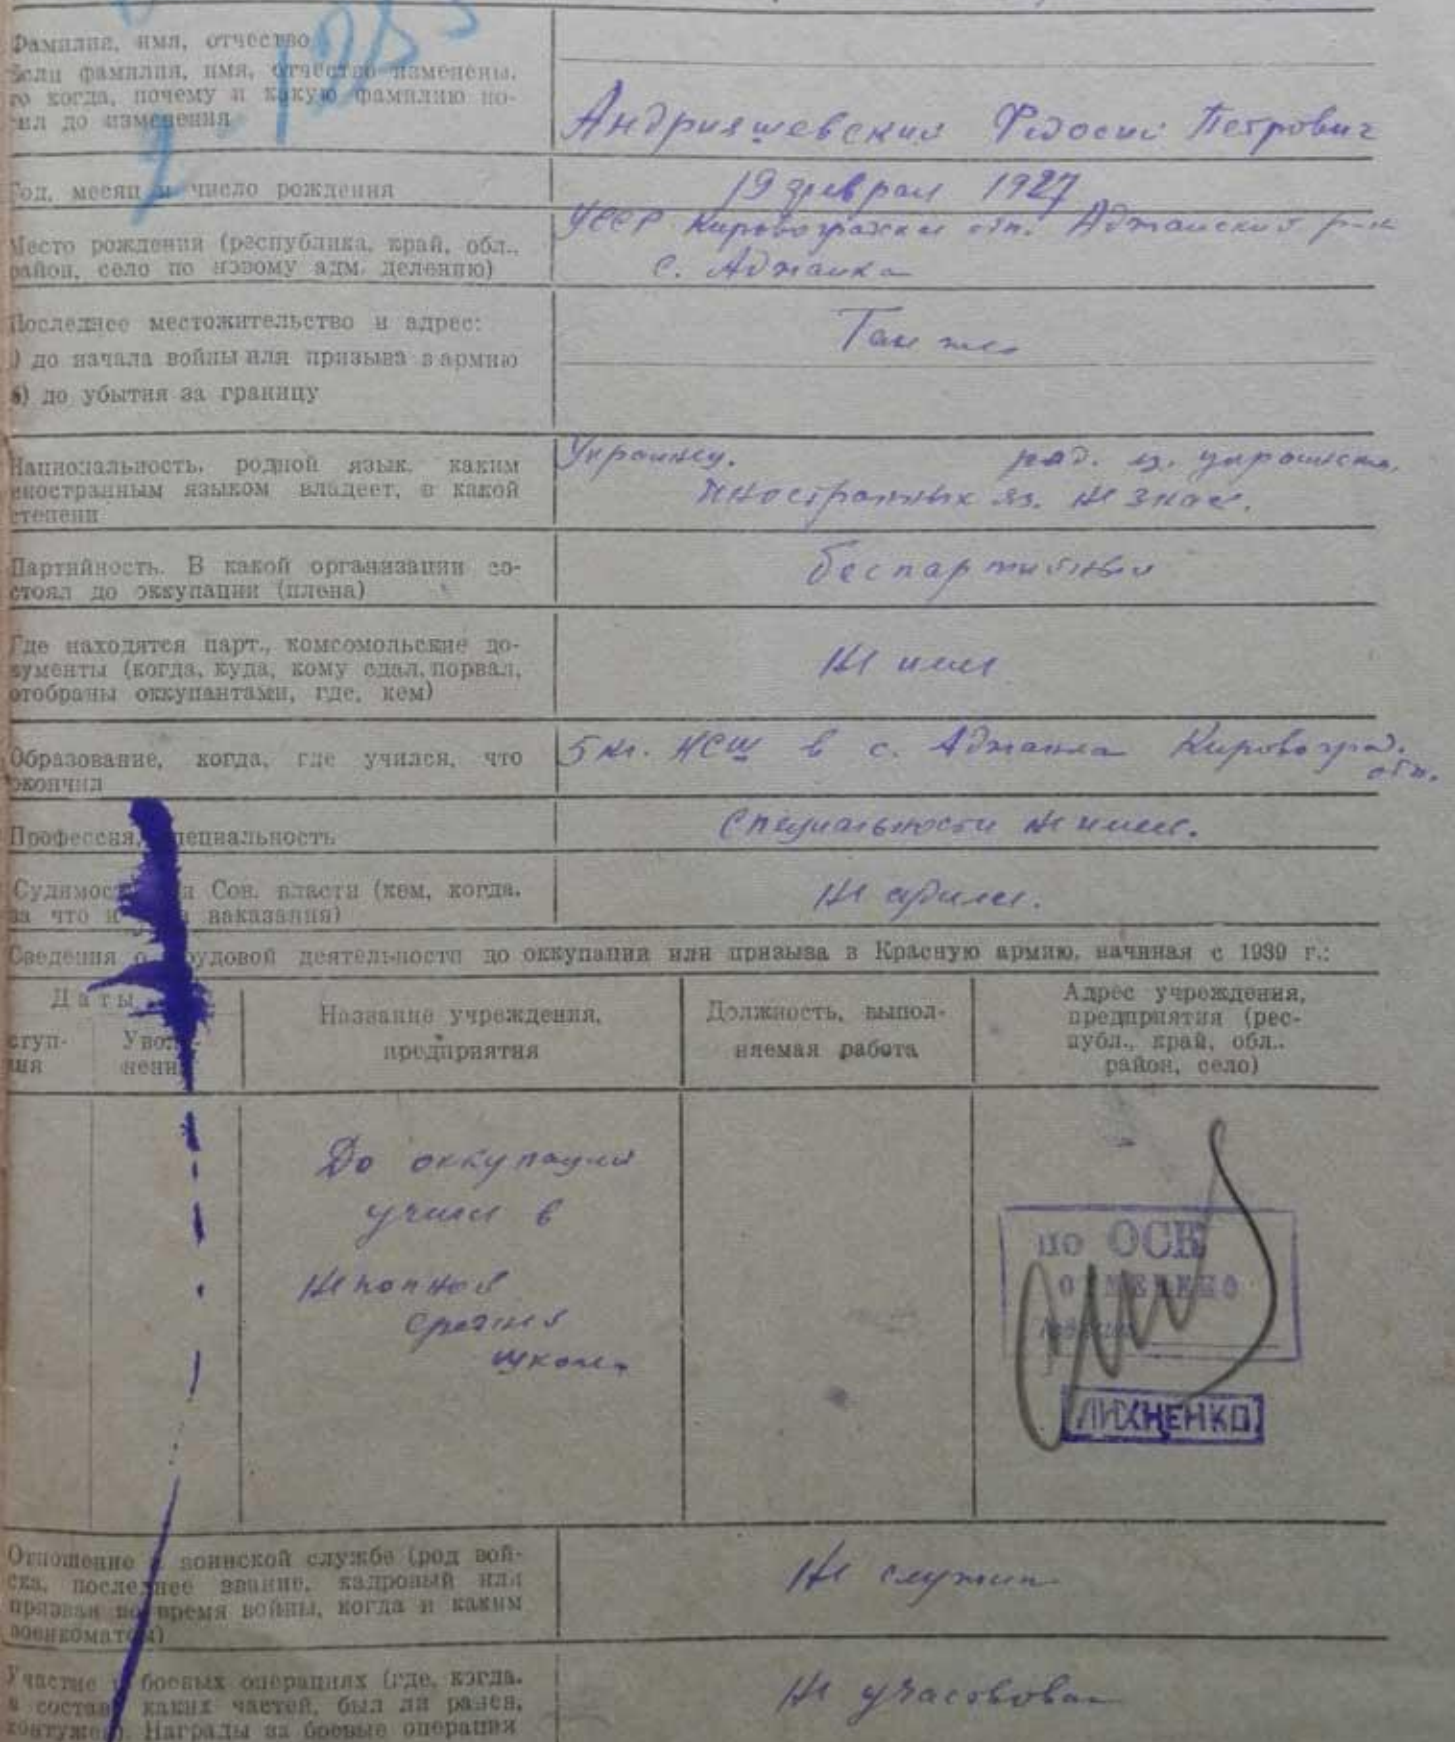 Фамилия, имя, отчество
Если фамилия, имя, отчество изменены,
то когда, почему и какую фамилию но-
сил до изменения
Андрияшевский Федосий Петрович
Год, месяц и число рождения
19 февраля 1927
Место рождения (республика, край, обл.,
район, село по новому адм. делению)
УССР Кировоградская обл. Аджамский р-н
с. Аджамка
Последнее местожительство и адрес:
) до начала войны или призыва в армию
б) до убытия за границу
Там же
Национальность, родной язык, каким
иностранным языком владеет, в какой
степени
Украинец. род. яз. украинский.
Иностранных яз. не знает.
Партийность. В какой организации со-
стоял до оккупации (плена)
беспартийный
Где находятся парт., комсомольские до-
кументы (когда, куда, кому сдал, порвал,
отобраны оккупантами, где, кем)
Не имел
Образование, когда, где учился, что
окончил
5 кл. НСШ в с. Аджамка Кировоград.
обл.
Профессия, специальность
Специальности не имеет.
Судимость Сов. власти (кем, когда,
за что и наказания)
Не судился.
Сведения о трудовой деятельности до оккупации или призыва в Красную армию, начиная с 1939 г.:
Даты
ступ-
ния
Уволь-
нения
Название учреждения,
предприятия
Должность, выпол-
няемая работа
Адрес учреждения,
предприятия (рес-
публ., край, обл.,
район, село)
До оккупации
учился в
Неполной
средней
школе
по ОСК
ЛИХНЕНКО
Отношение к воинской службе (род вой-
ска, последнее звание, кадровый или
призван во время войны, когда и каким
военкоматом)
Не служил
Участие в боевых операциях (где, когда,
в составе каких частей, был ли ранен,
контужен). Награды за боевые операции
Не участвовал